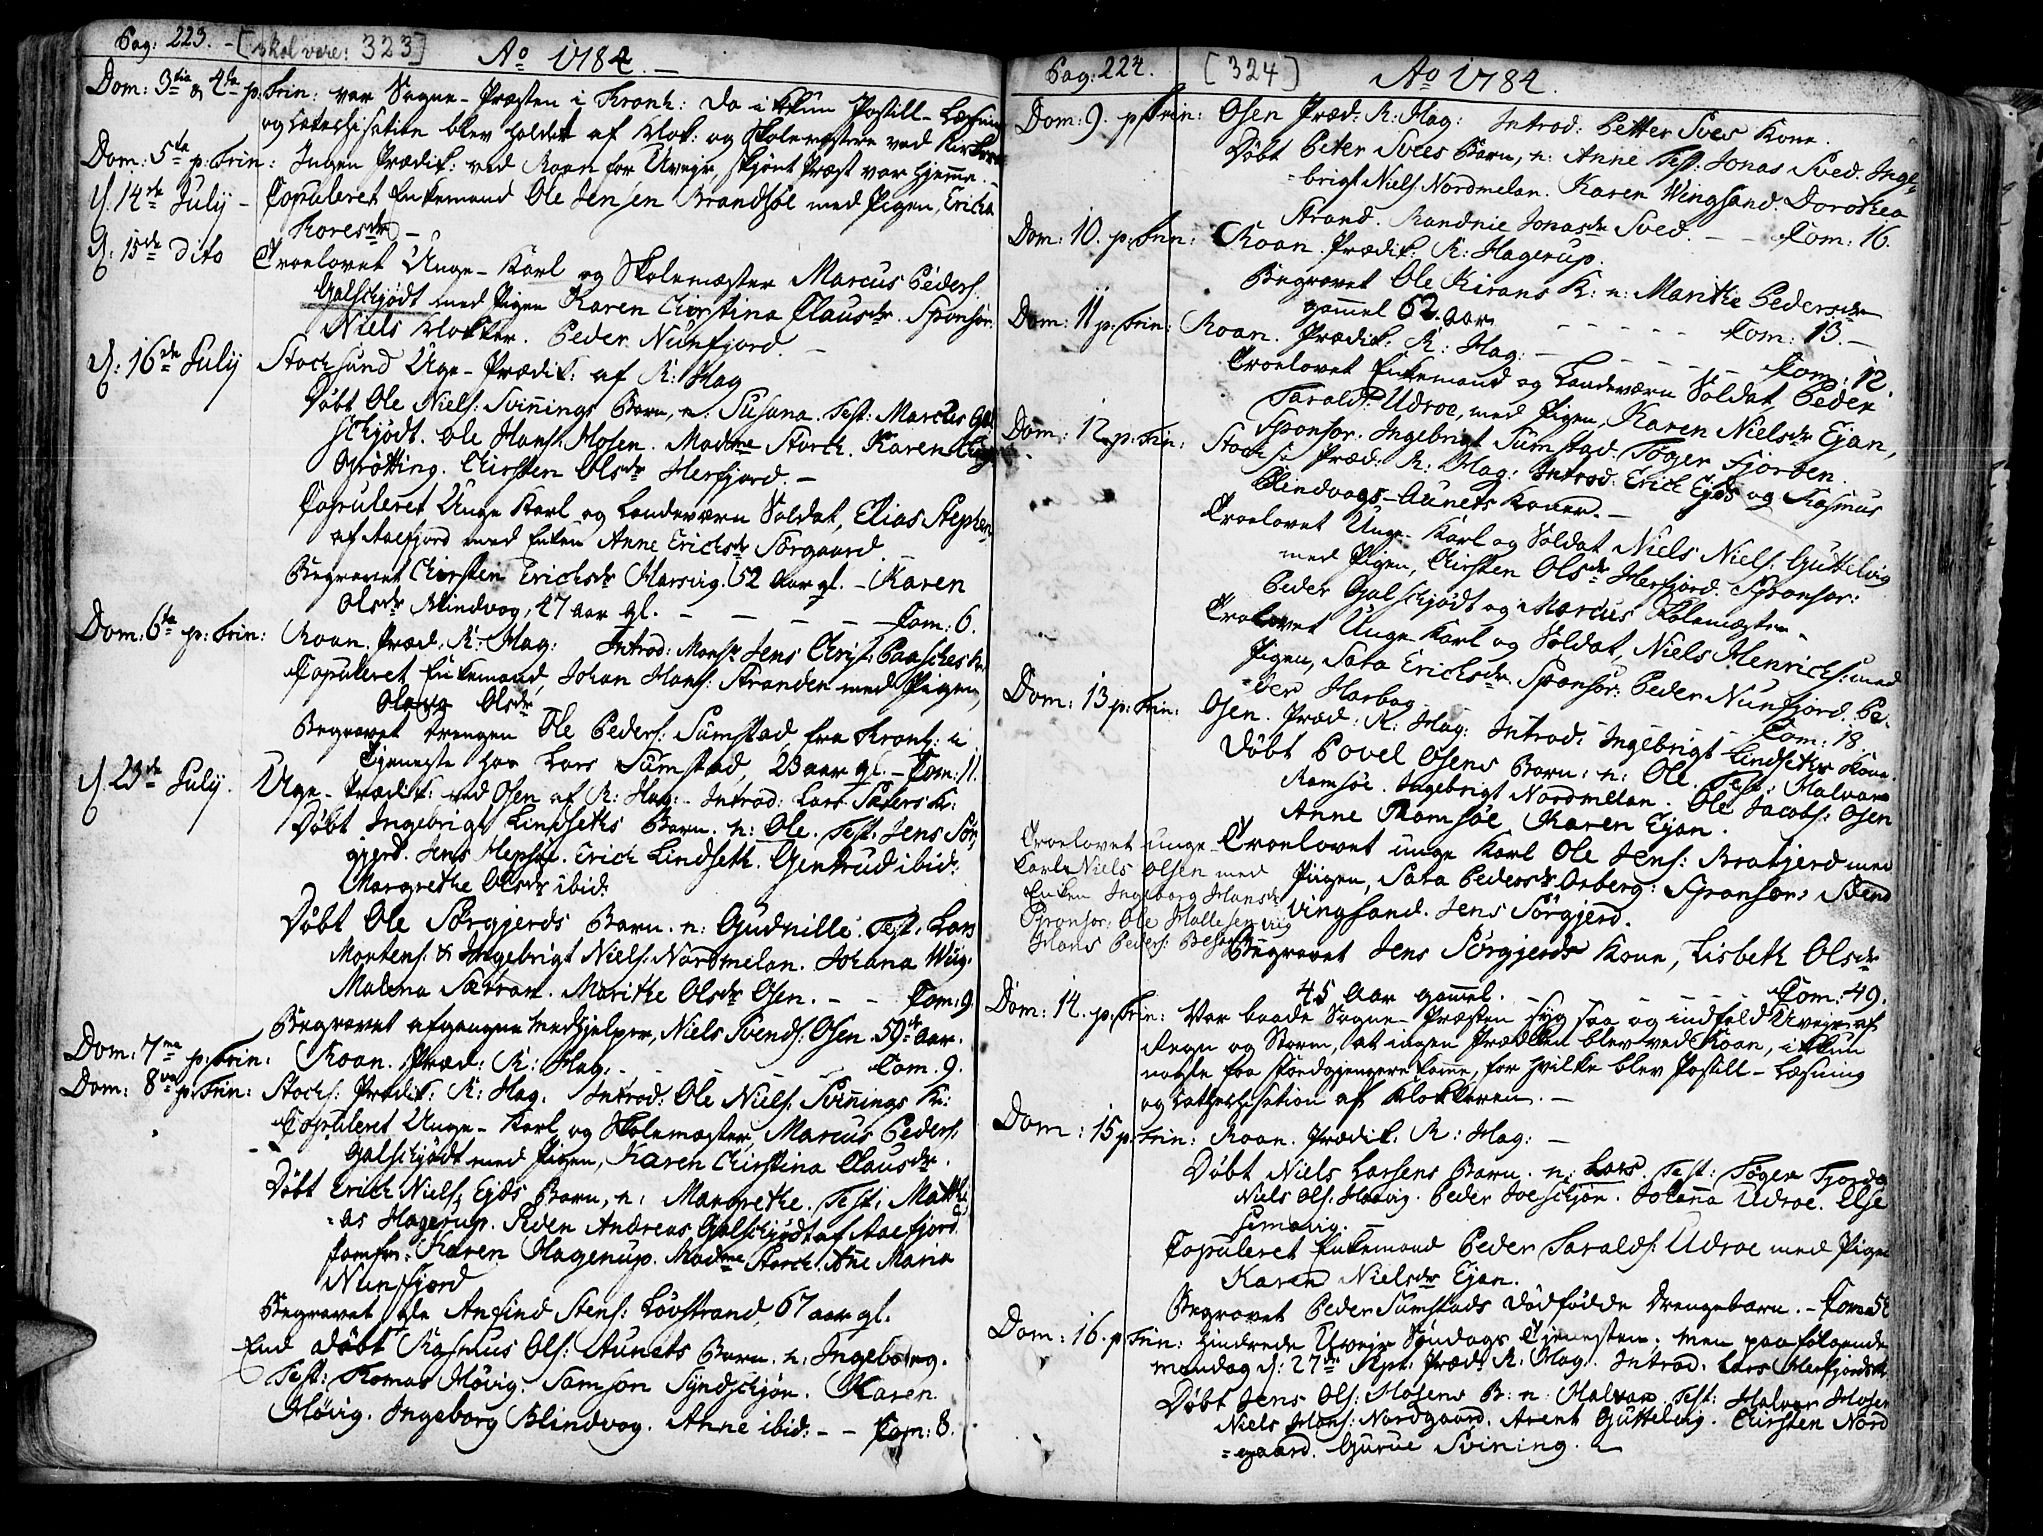 Pag: 223. - [skal være: 323] Ao 1784. -
Dom: 3tia & 4ta p: Trin: var Sogne-Præsten i Tronh: da ikkun Postill-Læsning
og Catechisation blev holdet af Klok: og Skolemestere ved Kirkerne
Dom: 5ta p: Trin: Ingen Prædik: ved Roan for Uvejr, skjønt Præst var hjemme. -
d. 14de July - Copuleret Enkemand Ole Jensen Brandsøe med Pigen, Ericha
Roresdr -
d: 15de dito Troelovet Unge-Karl og Skolemester Marcus Peders:
Galschjødt med Pigen Karen Christina Clausdr. Sponsor:
Niels Klokker. Peder Nunfjord. -
d: 16de July Stocksund Uge-Prædik: af R: Hag
Døbt Ole Niels: Svinnings Barn, n: Susana. Test: Marcus Gal-
schjødt. Ole Hans: Mosen. Madme Storch. Karen
Grøtting. Chirsten Olsdr Herfjord. -
Copuleret Unge Karl og Landeværn Soldat, Elias Stephen:
af Aaefjord med Enken Anne Erichsdr Sørgaard.
Begravet Chirsten Erichsdr Harsvig. 52 Aar gl. - Karen
Olsdr Blindvog, 47 aar gl. - - - - - Com: 6.
Dom: 6ta p: Trin: Roan. Præd: R: Hag: Introd: Monsr Jens Christ: Paasches K:
Copuleret Enkemand, Johan Hans: Stranden med Pigen,
Olava Olsdr
Begravet Drengen Ole Peders: Sumstad, fra Tronh: i
Tjeneste hos Lars Sumstad, 23 aar gl. - Com: 11.
d 23de July. Uge-Prædik: ved Osen af R: Hag: - Introd: Lars Sæters K:
Døbt Ingebrigt Lindseths Barn. n: Ole. Test: Jens Sør-
gjerd. Jens Hepsøe. Erich Lindseth. Gjentrud ibid:
Margrethe Olsdr ibid:
Døbt Ole Sørgjerds Barn. n: Gudnille. Test: Lars
Mortens: & Ingebrigt Niels: Nordmelan. Johana Wiig.
Malena Sætran. Marithe Olsdr Osen. - - Com: 9.
Begravet afgangne Medhjelper, Niels Svends: Osen. 59de Aar.
Dom: 7ma p: Trin: Roan. Præd: R: Hag: - - - - - Com. 9.
Dom: 8va p: Trin: Stochs: Prædik: R: Hag. Introd: Ole Niels: Svinnings K:
Copuleret Unge-Karl og Skolemester Marcus Peders:
Galschjødt med Pigen, Karen Chirstina Clausdr.
Døbt Erich Niels: Ejds Barn, n: Margrethe. Test: Matthi-
=as Hagerup. Peder Andreas Galschjødt af Aaefjord.
Jomfr: Karen Hagerup. Madme Storch. Ane Maria
Nunfjord
Begravet Ole Anfind Stens: Løvstrand, 67 aar gl.
End døbt Rasmus Ols: Aunets Barn. n: Ingeborg.
Test: Thomas Høvig. Samson Syndschjør. Karen
Høvig. Ingeborg Blindvog. Anne ibid: - - Com: 8.
Pag: 224. [324] Ao 1784.
Dom: 9. p Trin: Osen Præd: R: Hag: Introd: Petter Sves Kone.
Døbt Peter Svees Barn, n: Anne Test: Jonas Sved. Inge-
=brigt Niels: Nordmelan. Karen Wingsand. Dorothea
Strand. Randnie Jonasdr Sved. - - Com: 16.
Dom: 10. p: Trin: Roan. Prædik: R: Hagerup.
Begravet Ole Kirans K: n: Marithe Pedersdr
gammel 62. Aar - - - - - Com: 13. -
Dom: 11 p: Trin: Roan. Prædik: R: Hag: - - - - Com: 12.
Troelovet Enkemand og Landeværn Soldat, Peder
Taralds: Udroe, med Pigen, Karen Nielsdr Ejan,
Sponsor. Ingebrigt Sumstad. Tøger Fjorden.
Dom: 12. p: Trin: Stochs: Præd: R: Hag: Introd: Erich Ejds og Rasmus
Blindvogs-Aunets Koner. -
Troelovet Unge-Karl og Soldat Niels Niels: Guttelvig
med Pigen, Chirsten Olsdr Herfjord. Sponsor:
Peder Galschjødt og Marcus Skolemester.
Troelovet Unge Karl og Soldat, Niels Henrichs: med
Pigen, Sara Erichsdr. Sponsor: Peder Nunfjord. Pe-
=der Harbag - Com: 18.
Dom: 13 p: Trin: Osen. Præd: R: Hag: Introd: Ingebrigt Lindseths Kone.
Døbt Povel Osens Barn: n: Ole. Test: Halvar
Ramsøe. Ingebrigt Nordmelan. Ole Jacobs: Osen
Anne Ramsøe Karen Ejan.
Troelovet unge Karl Ole Jens: Bratjerd med
Pigen, Sara Pedersdr Aarberg: Sponsor: Svend
Vingsand. Jens Sørgjerd.
Troelovet unge
Karl Niels Olsen med
Enken Ingeborg Hansdr
Sponsor: Ole Hallesenvig
Hans Peders: Bessa
Begravet Jens Sørgjerds Kone, Lisbeth Olsdr
45 Aar gammel. - - - - Com: 49.
Dom: 14. p: Trin: Var baade Sogne-Præsten syg saa og indfald Uvejr af
Regn og Storm, at ingen Prædiken blev ved Roan, ikkun
nogle faa Strandgjengere komne, for hvilke blev Postill-Læsning
og Catechisation af Klokkeren. -
Dom: 15 p: Trin: Roan. Prædik: R: Hag: -
Døbt Niels Larsens Barn. n: Lars. Test: Tøger Fjorda
Niels Ols: Høvig. Peder Joeschjør. Johanna Udroe. Else
Sumavig. -
Copuleret Enkemand Peder Taralds: Udroe med Pigen
Karen Nielsdr Ejan.
Begravet Peder Sumstads dødfødde Drengebarn. - Com: 56
Dom: 16. p. Trin: Hindrede Uvejr Søndags Tjenesten. Men paafølgende
Mandag d: 27de Sept: Præd: R: Hag. Introd: Lars Herfjords K:
Døbt Jens Ols: Mosens B: n: Halvar. Test: Halvor Mosen
Niels Hans: Nordgaard. Arent Guttelvig. Chirsten Nord
=gaard. Gurue Svining. -